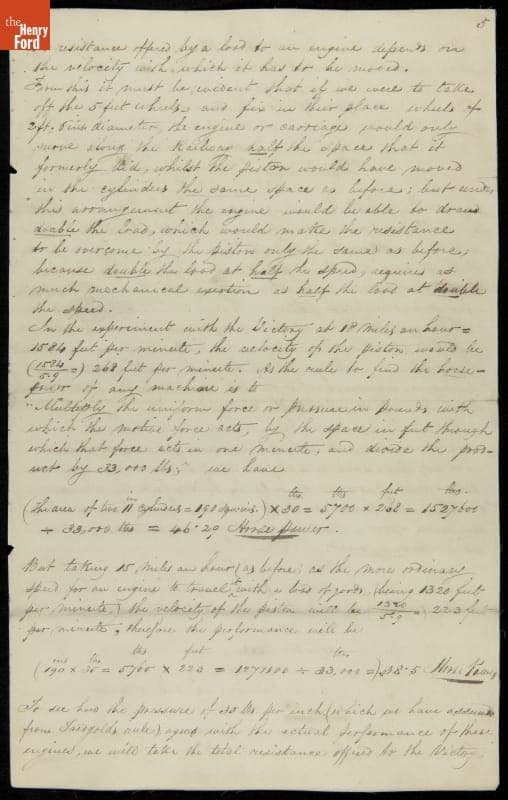 the
Henry
Ford
5
resistance offered by a load to an engine depends on
the velocity with which it has to be moved.
From this it must be evident that if we were to take
off the 5 feet wheels, and fix in their place wheels of
2ft. 6 ins diameter, the engine or carriage would only
move along the Railway half the space that it
formerly did, whilst the piston would have moved
in the cylinders the same space as before; but under
this arrangement the engine would be able to draw
double the load, which would make the resistance
to be overcome by the piston only the same as before,
because double the load at half the speed, requires as
much mechanical exertion as half the load at double
the speed.
In the experiment with the Victory at 18 miles an hour =
1584 feet per minute, the velocity of the piston would be
(1584/5.9 =) 268 feet per minute. As the rule to find the horse-
power of any machine is to
"Multiply the uniform force or pressure in pounds with
which the motive force acts, by the space in feet through
which that force acts in one minute, and divide the prod-
uct by 33,000 lbs; we have
in lbs lbs feet lbs
(The area of two 11 cylinders = 190 sqr ins.) × 30 = 5700 × 268 = 1527600
÷ 33,000 lbs = 46.29 Horse Power.
But taking 15 miles an hour (as before) as the more ordinary
speed for an engine to travel at with a load of goods, (being 1320 feet
per minute) the velocity of the piston will be (1320/5.9 =) 223 feet
per minute, therefore the performance will be
ins lbs lbs feet lbs
(190 × 30 = 5700 × 223 = 1271100 ÷ 33,000 =) 38.5 Horse Power,
To see how the pressure of 30 lbs. per inch (which we have adduced
from Tredgold's rule) agrees with the actual performance of these
engines, we will take the total resistance offered to the Victory,